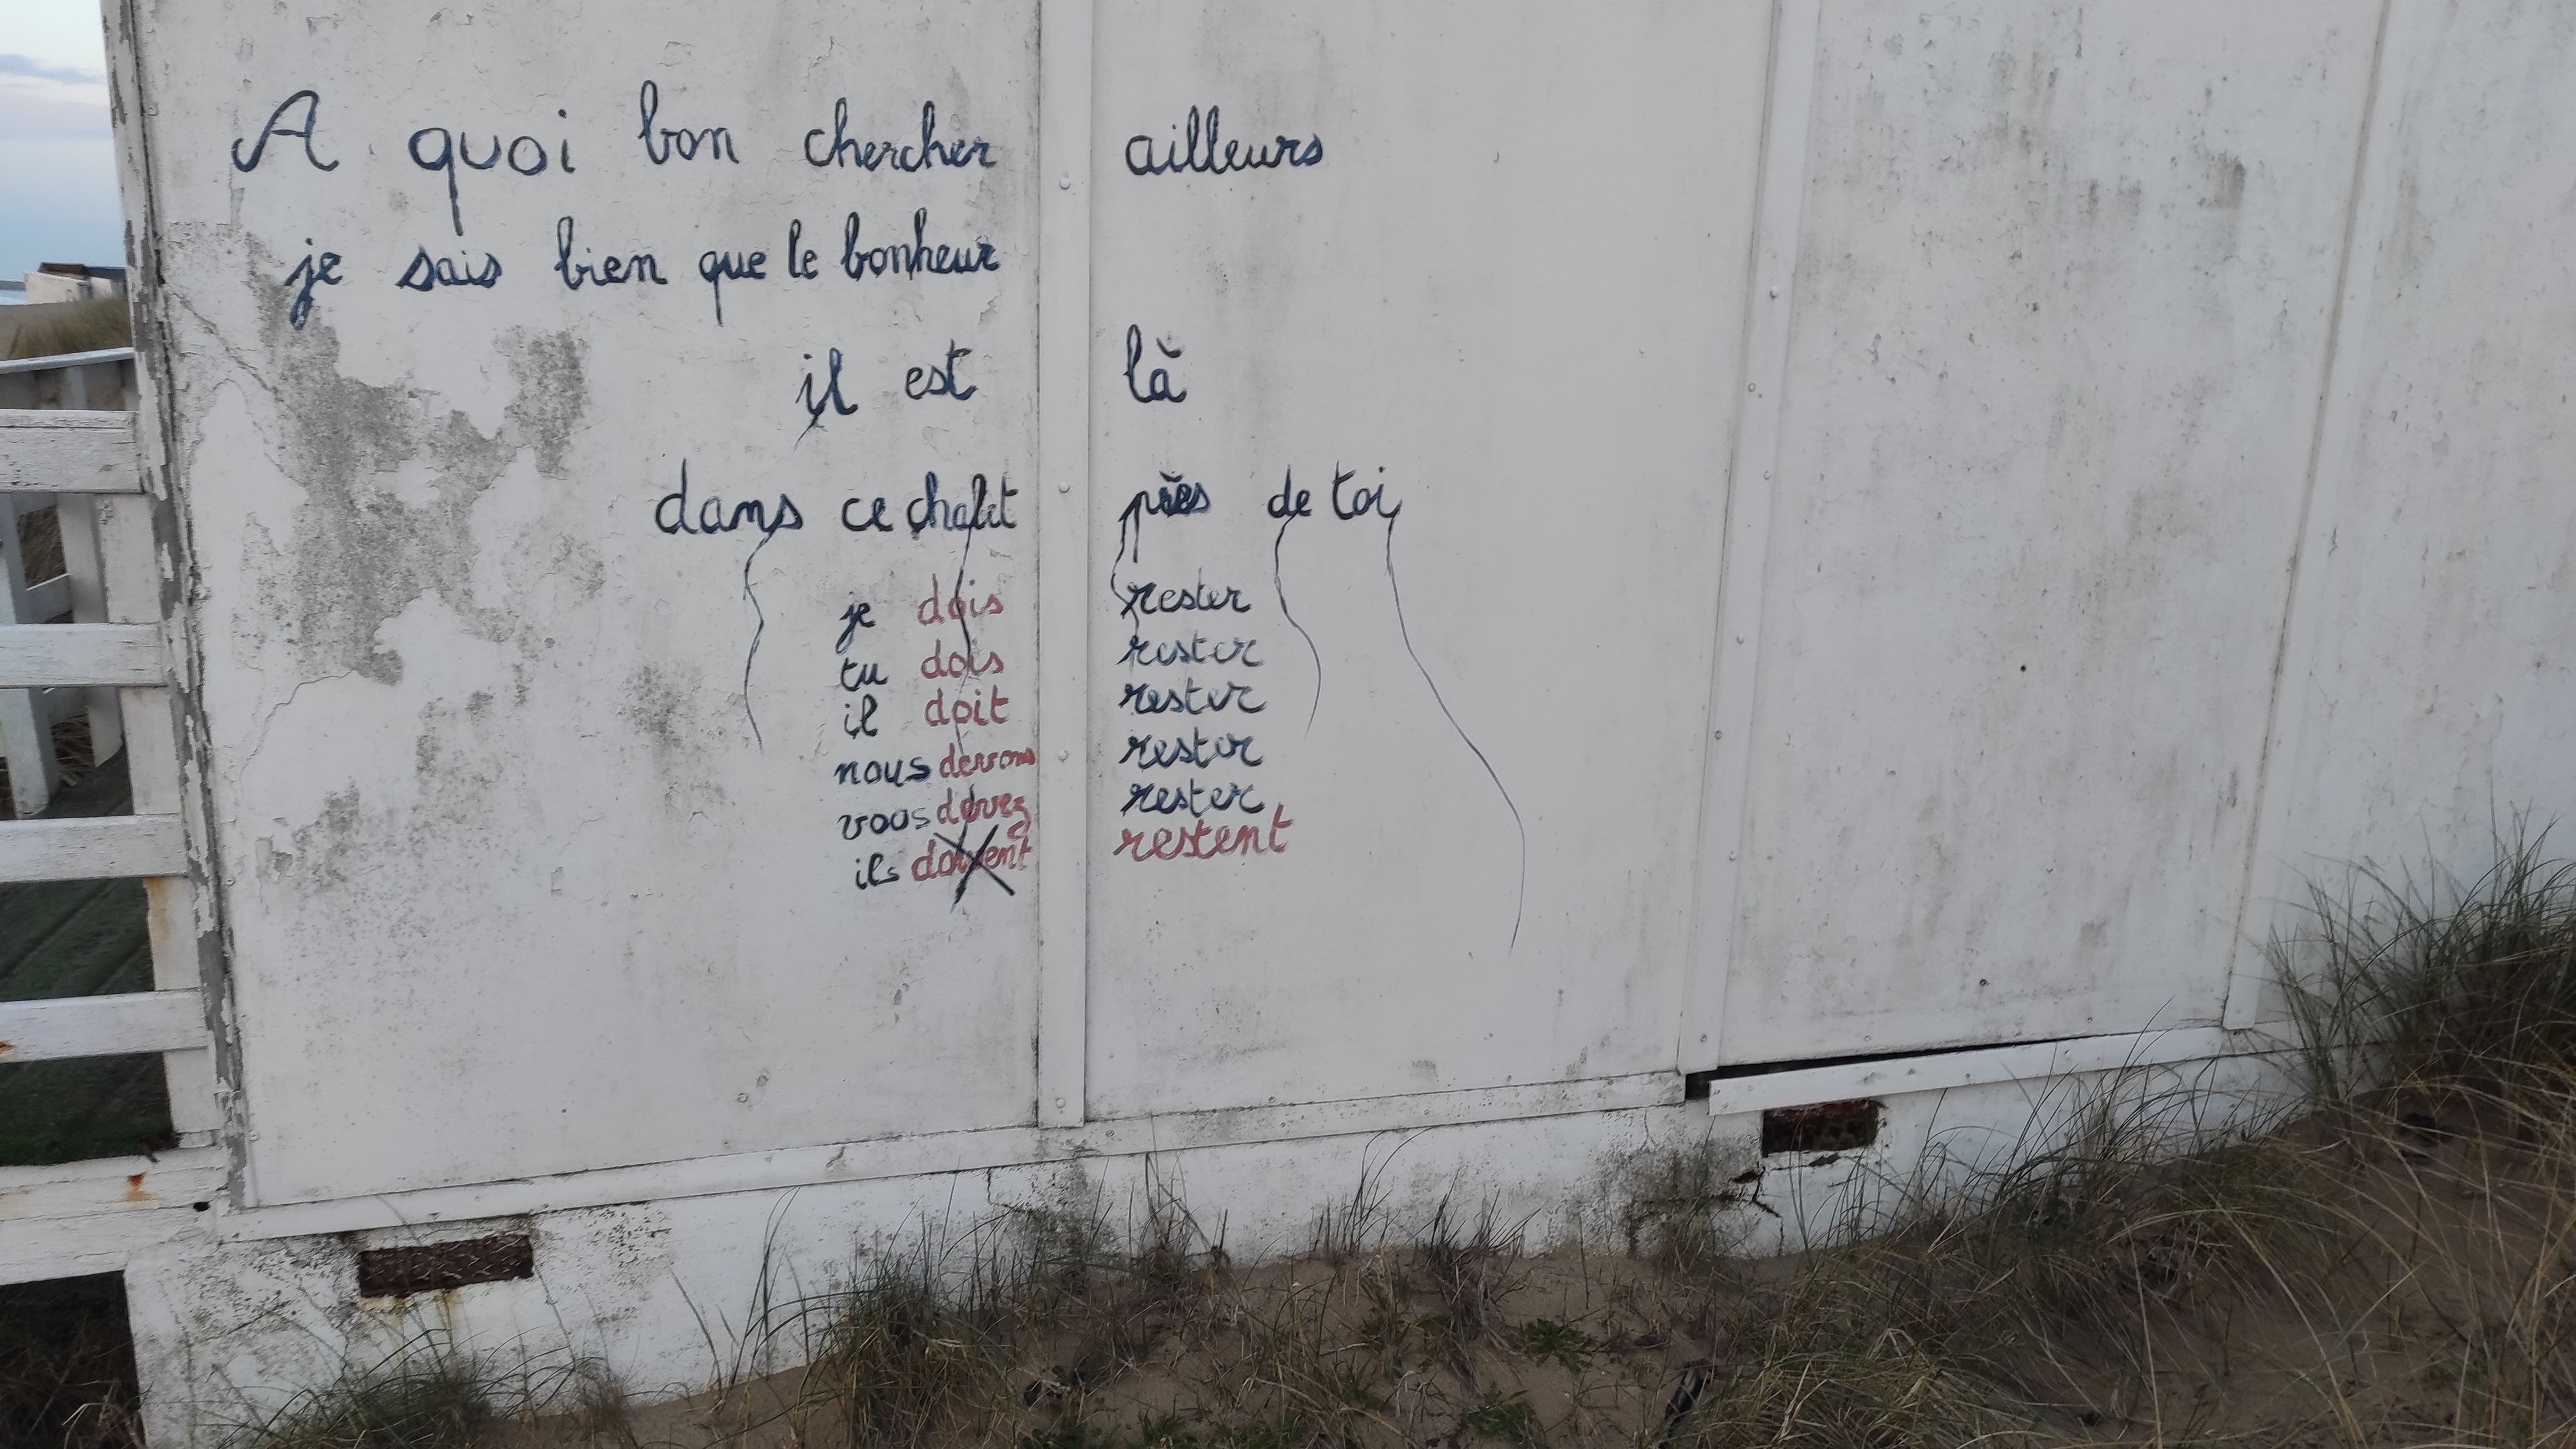 A quoi bon chercher ailleurs
je sais bien que le bonheur
il est là
dans ce chalet près de toi
je dois rester
tu dois rester
il doit rester
nous devons rester
vous devez rester
ils doivent restent